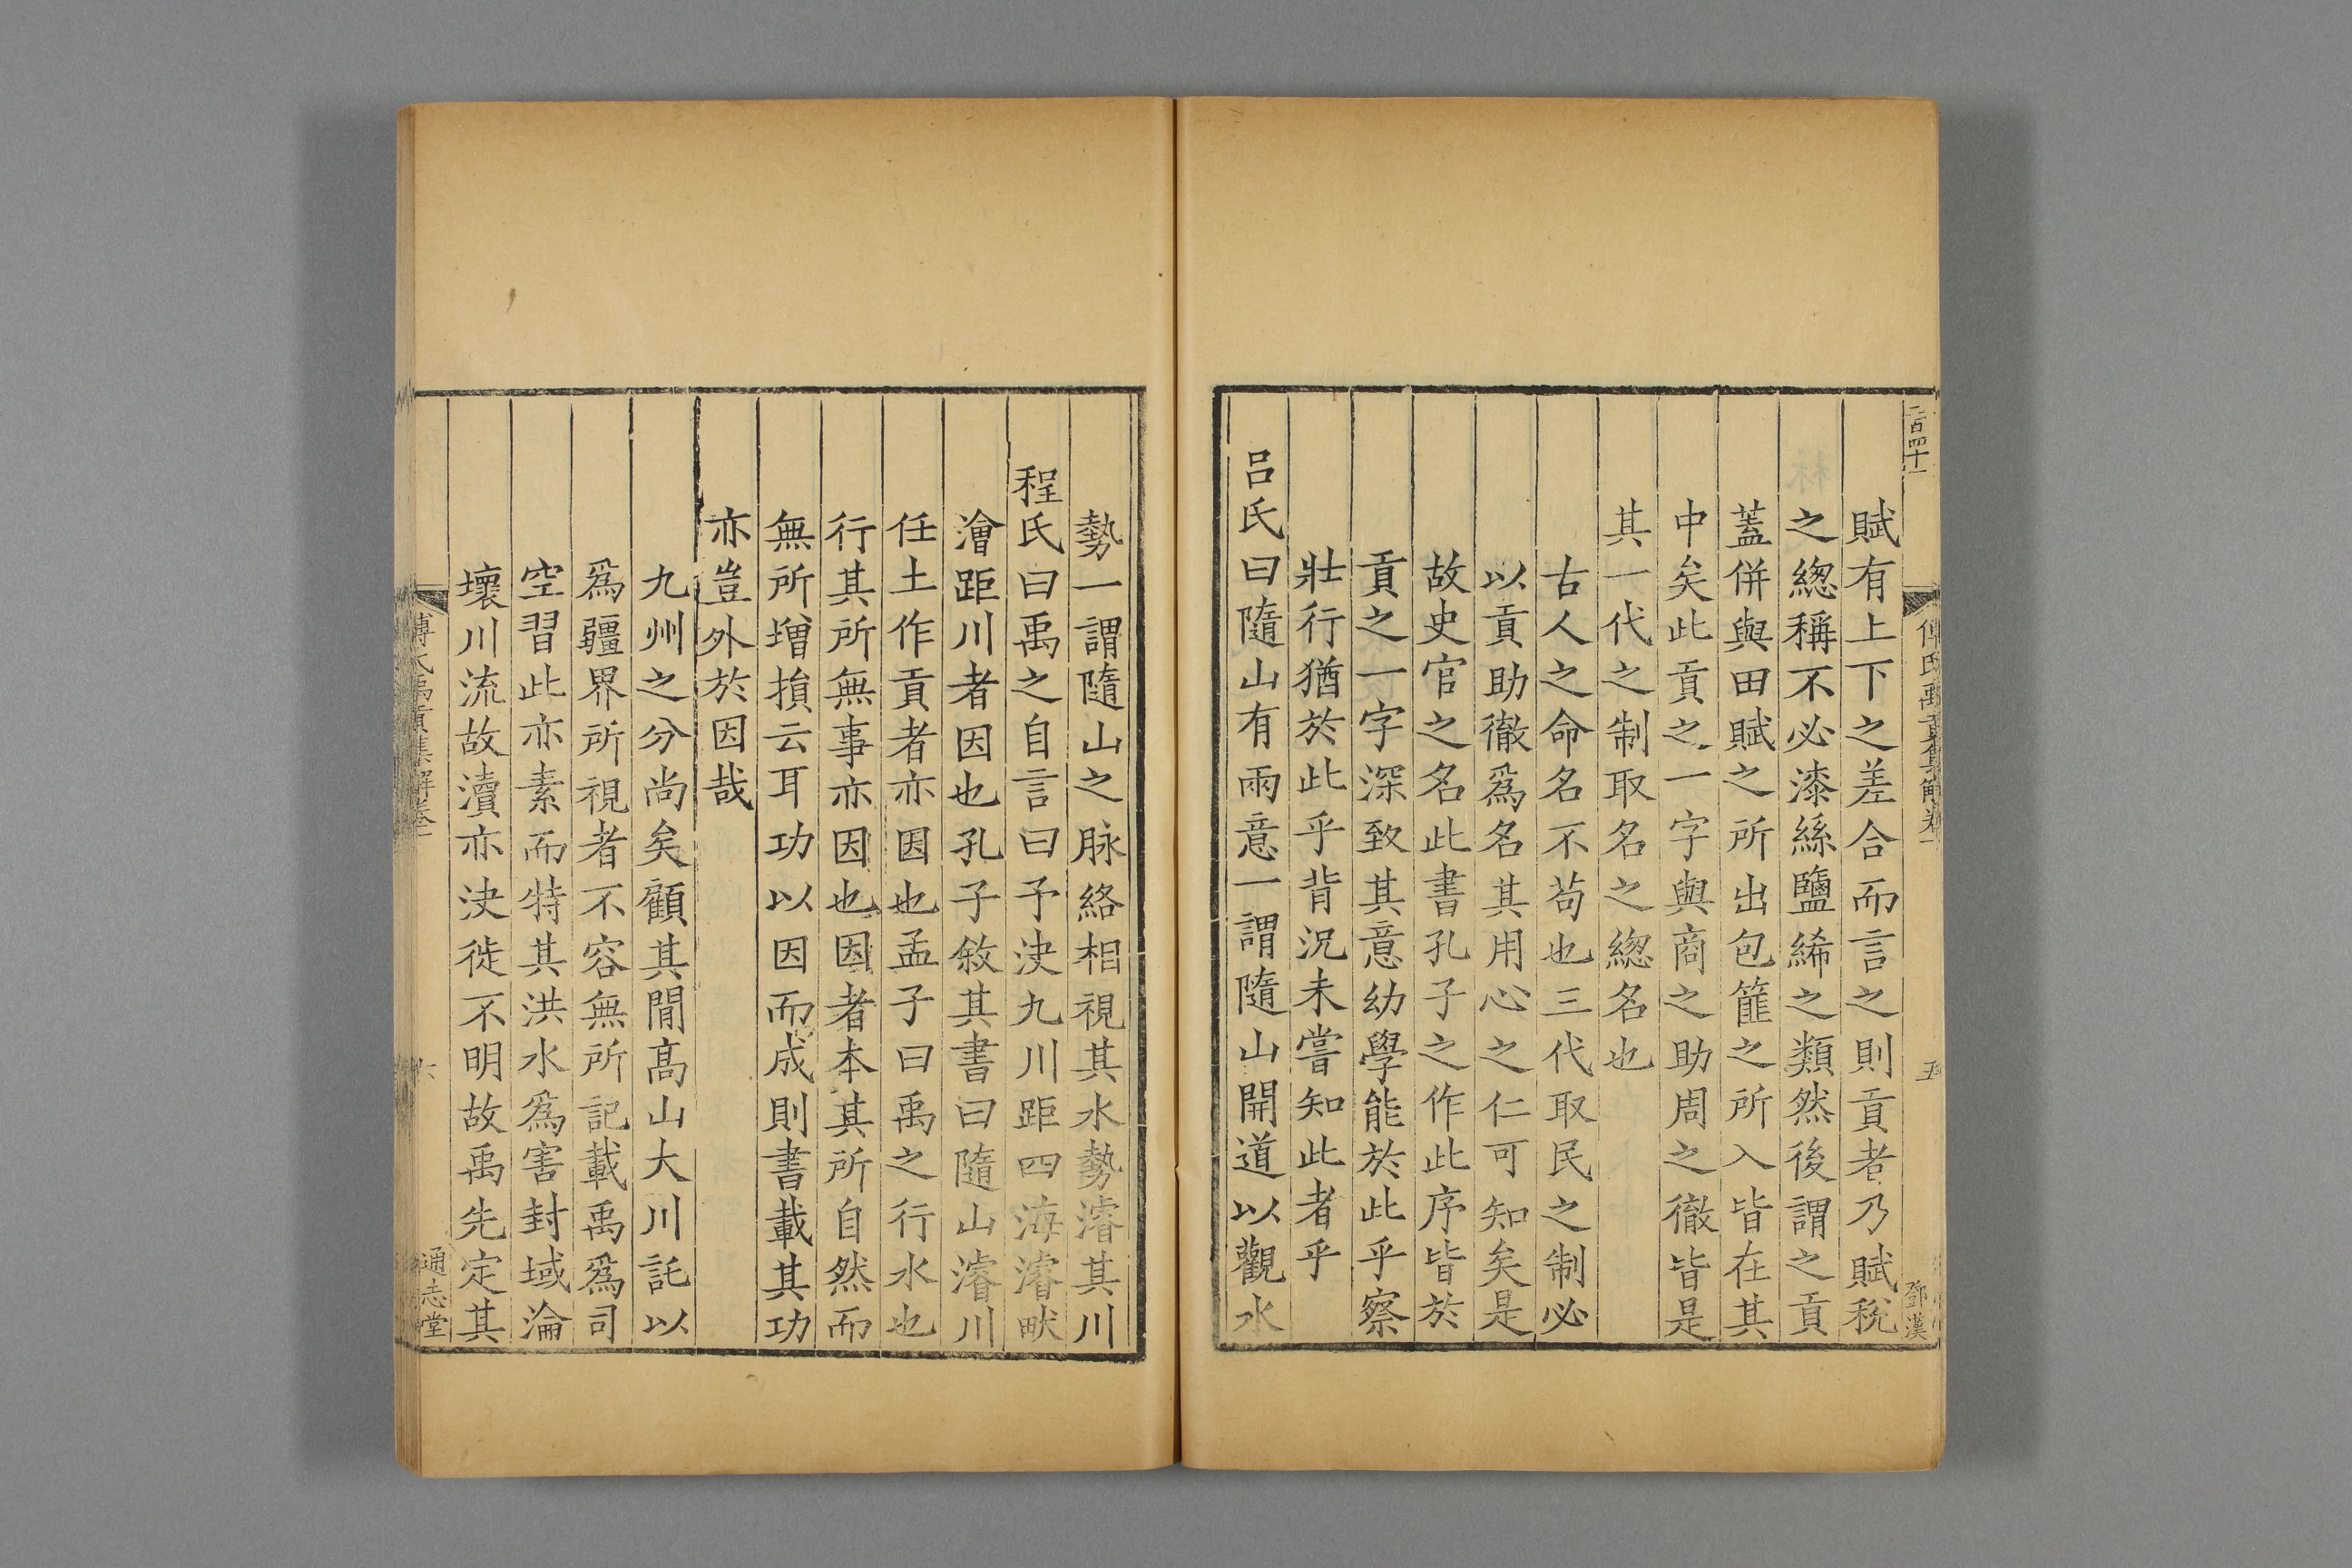 二百四十一
傅氏禹貢集解卷一
五
鄧漢
賦有上下之差合而言之則貢者乃賦稅
之緫稱不必漆絲鹽絺之類然後謂之貢
蓋併與田賦之所出包篚之所入皆在其
中矣此貢之一字與商之助周之徹皆是
其一代之制取名之緫名也
古人之命名不苟也三代取民之制必
以貢助徹爲名其用心之仁可知矣是
故史官之名此書孔子之作此序皆於
貢之一字深致其意幼學能於此乎察
壯行猶於此乎背況未嘗知此者乎
呂氏曰隨山有兩意一謂隨山開道以觀水
勢一謂隨山之脉絡相視其水勢濬其川
程氏曰禹之自言曰予決九川距四海濬畎
澮距川者因也孔子敘其書曰隨山濬川
任土作貢者亦因也孟子曰禹之行水也
行其所無事亦因也因者本其所自然而
無所增損云耳功以因而成則書載其功
亦豈外於因哉
九州之分尚矣顧其閒髙山大川託以
爲疆界所視者不容無所記載禹爲司
空習此亦素而特其洪水爲害封域淪
壞川流故瀆亦決徙不明故禹先定其
傅氏禹貢集解卷一
六
通志堂